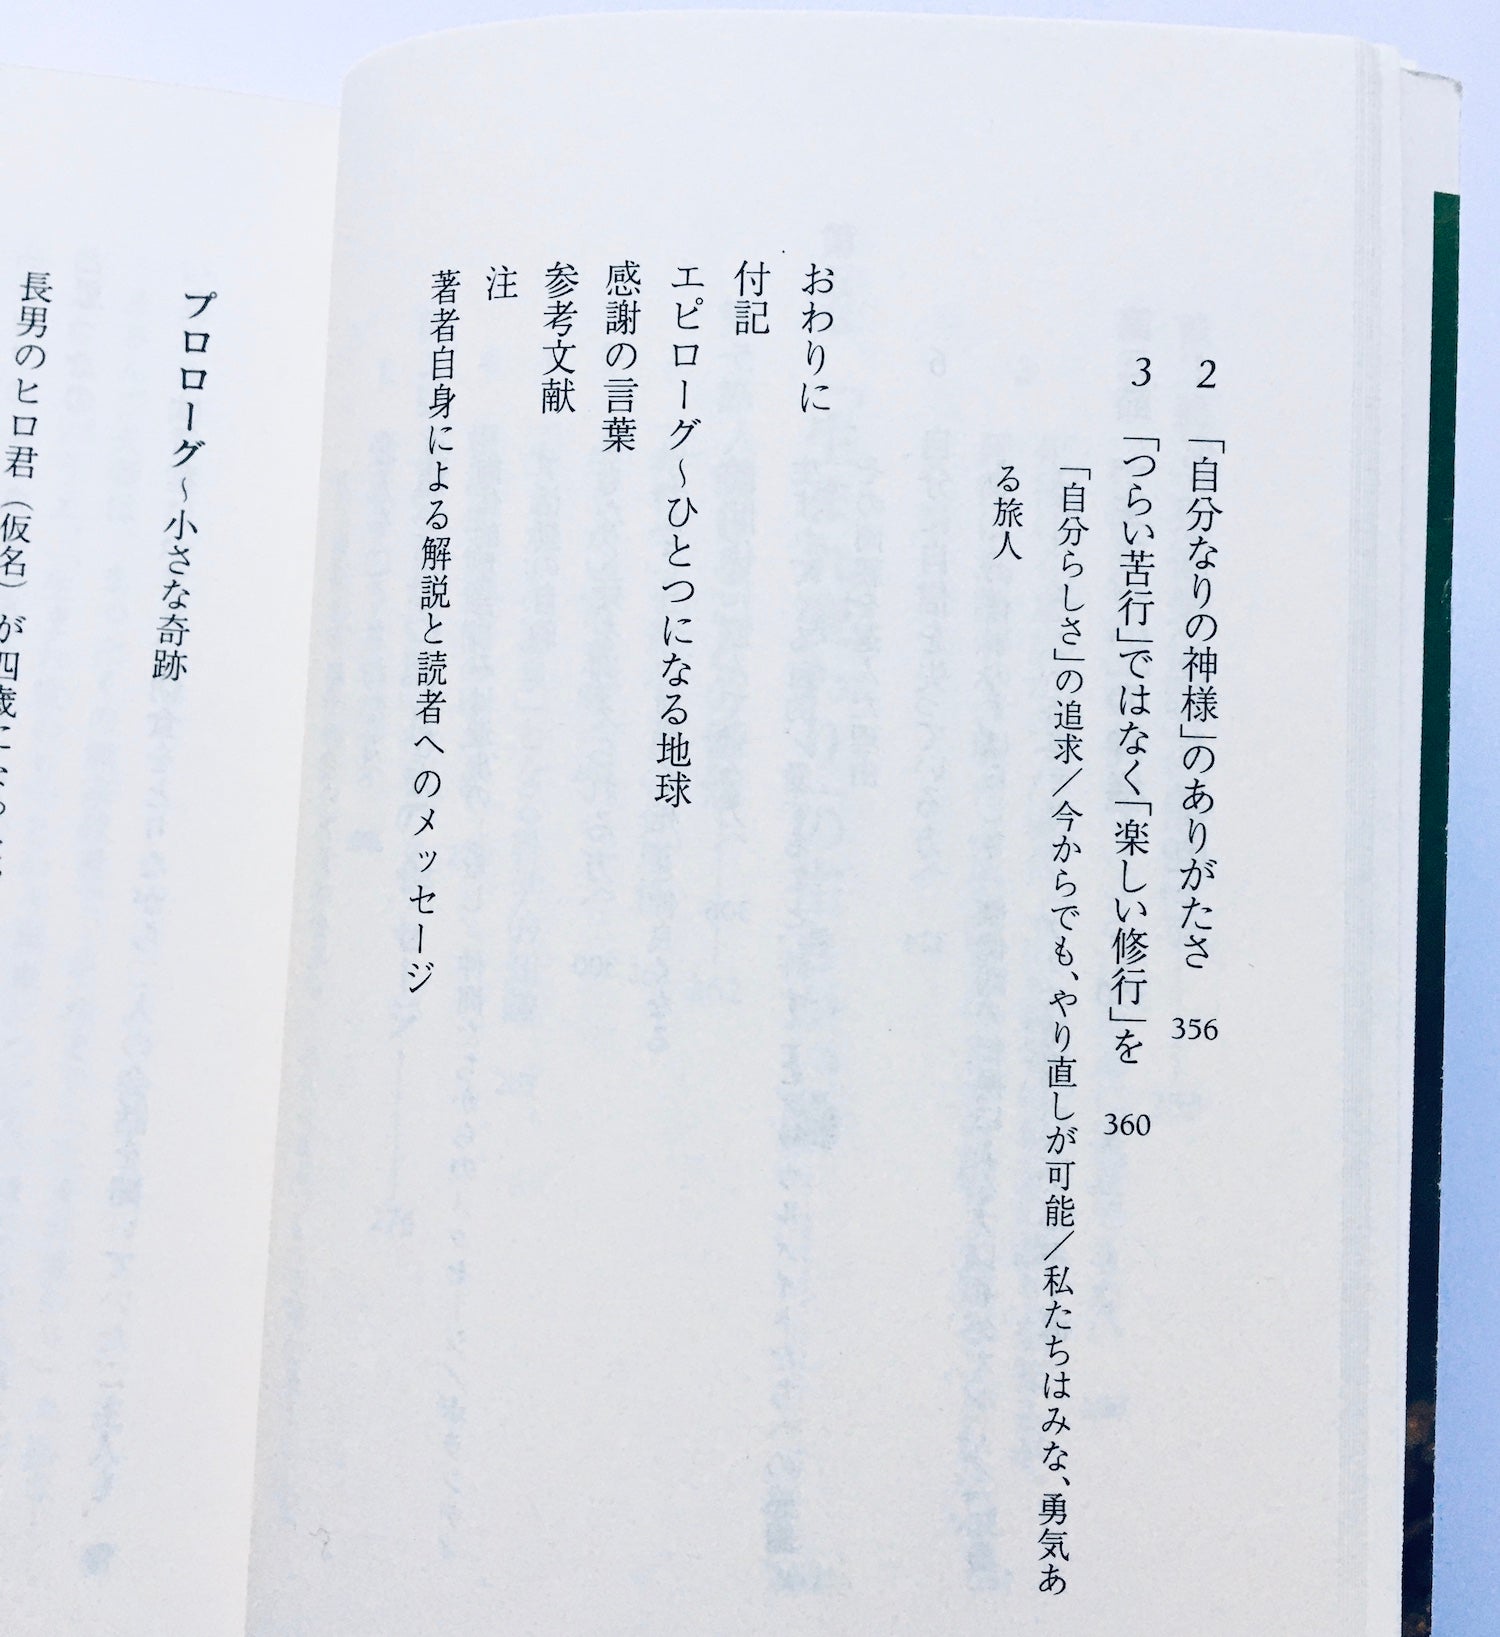 2 「自分なりの神様」のありがたさ 356
3 「つらい苦行」ではなく「楽しい修行」を 360
「自分らしさ」の追求/今からでも、やり直しが可能/私たちはみな、勇気あ
る旅人
おわりに
付記
エピローグ～ひとつになる地球
感謝の言葉
参考文献
注
著者自身による解説と読者へのメッセージ
プロローグ～小さな奇跡
長男のヒロ君(仮名)が四歳に